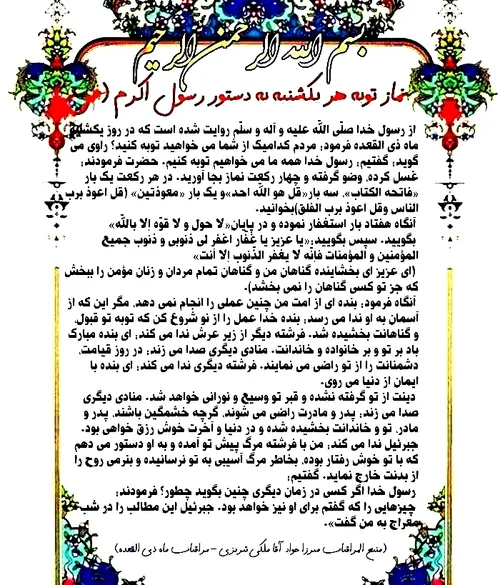 بسم الله الرحمن الرحیم
نماز توبه هر یکشنبه به دستور رسول اکرم (ص)
از رسول خدا صلّی اللّه علیه و آله و سلّم روایت شده است که در روز یکشنبه
ماه ذی القعده فرمود: مردم کدامیک از شما می خواهید توبه کنید؟ راوی می
گوید: گفتیم: رسول خدا همه ما می خواهیم توبه کنیم. حضرت فرمودند:
غسل کرده، وضو گرفته و چهار رکعت نماز بجا آورید. در هر رکعت یک بار
«فاتحه الکتاب»، سه بار«قل هو اللّه احد»و یک بار «معوذتین» (قل اعوذ برب
الناس وقل اعوذ برب الفلق)بخوانید.
آنگاه هفتاد بار استغفار نموده و در پایان«لا حول و لا قوّه إلا باللّه»
بگویید. سپس بگویید:«یا عزیز یا غفّار اغفر لی ذنوبی و ذنوب جمیع
المؤمنین و المؤمنات فإنّه لا یغفر الذّنوب إلا أنت»
(ای عزیز ای بخشاینده گناهان من و گناهان تمام مردان و زنان مؤمن را ببخش
که جز تو کسی گناهان را نمی بخشد).
آنگاه فرمود: بنده ای از امت من چنین عملی را انجام نمی دهد، مگر این که از
آسمان به او ندا می رسد: بنده خدا عمل را از نو شروع کن که توبه تو قبول،
و گناهانت بخشیده شد. فرشته دیگر از زیر عرش ندا می کند: ای بنده مبارک
باد بر تو و بر خانواده و خاندانت. منادی دیگری صدا می زند: در روز قیامت،
دشمنانت را از تو راضی می نمایند. فرشته دیگری ندا می کند: ای بنده با
ایمان از دنیا می روی.
دینت از تو گرفته نشده و قبر تو وسیع و نورانی خواهد شد. منادی دیگری
صدا می زند: پدر و مادرت راضی می شوند، گرچه خشمگین باشند، پدر و
مادر، تو و خاندانت بخشیده شده و در دنیا و آخرت خوش رزق خواهی بود.
جبرئیل ندا می کند: من با فرشته مرگ پیش تو آمده و به او دستور می دهم
که با تو خوش رفتار بوده، بخاطر مرگ آسیبی به تو نرسانیده و بنرمی روح را
از بدنت خارج نماید. گفتیم:
رسول خدا اگر کسی در زمان دیگری چنین بگوید چطور؟ فرمودند:
چیزهایی را که گفتم برای او نیز خواهد بود. جبرئیل این مطالب را در شب
معراج به من گفت».
(منبع المراقبات میرزا جواد آقا ملکی تبریزی - مراقبات ماه ذی القعده)